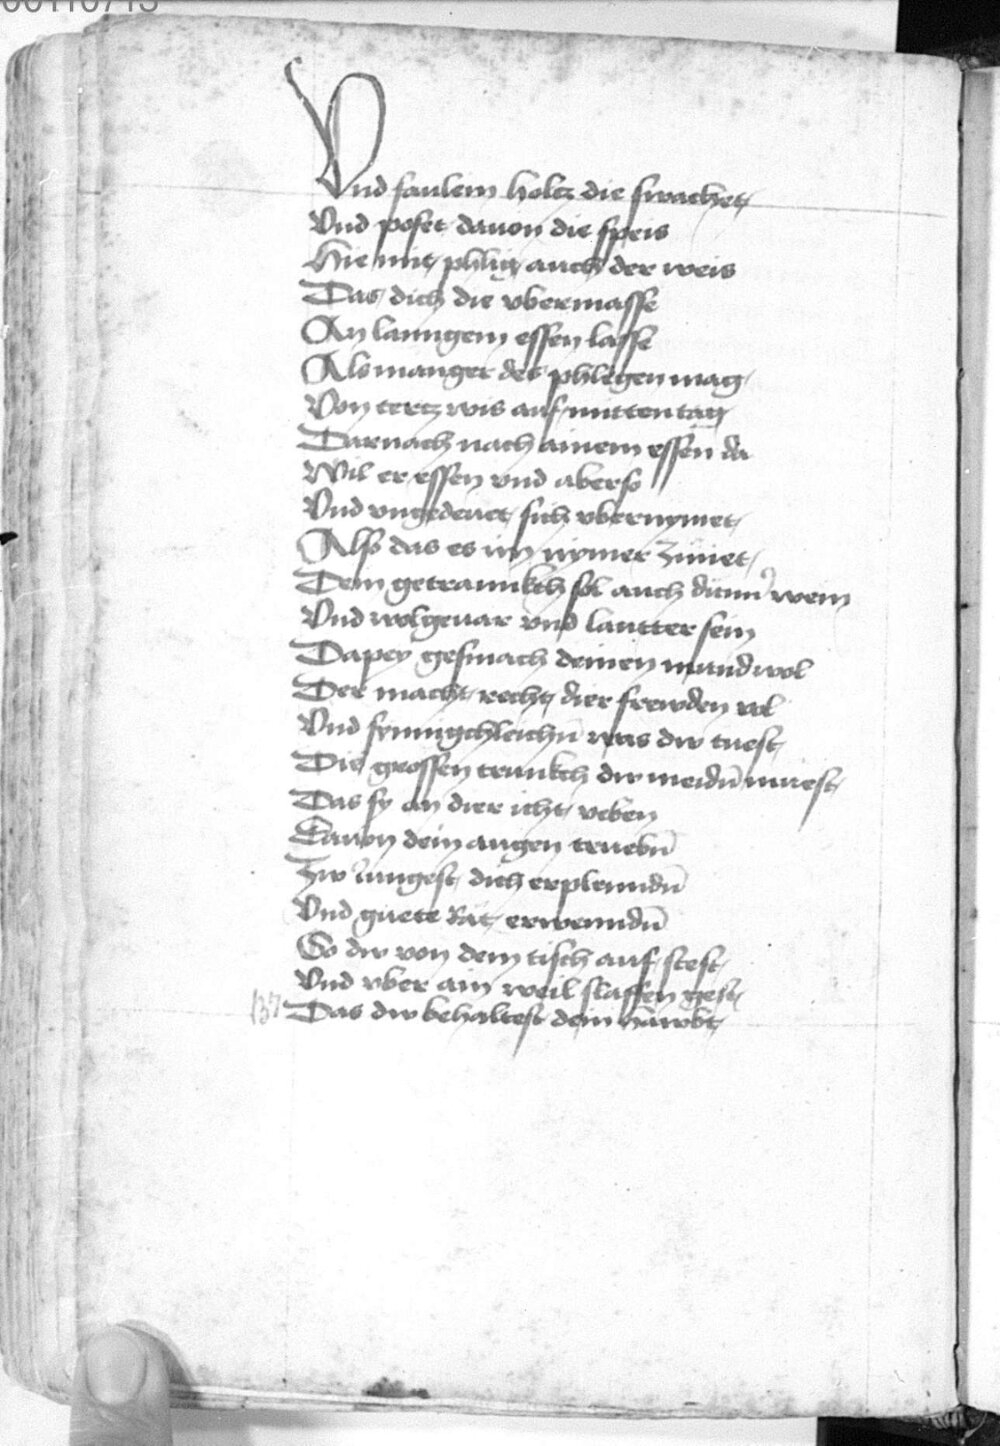 00110713
Vnd faulem holcz die swachet
Vnd poset dauon die speis
Hie mit phlig auch der weis
Das dich die vbermasse
An lanngem essen lasse
Als manger des phlegen mag
Von tertz wis auf mitten tag
Darnach nach ainem essen da
Wil er essen vnd aber so
Vnd vngedeuet sich vbernymet
Also das es im nymer zimet
Dem getrannkch sol auch dinn wein
Vnd wolgeuar vnd lautter sein
Dapey gesmach deinen mund wol
Der macht recht dier frewden vol
Vnd synnigchleichn̄ was dw tuest
Die grossen trunkch dw meidn̄ muest
Das sy an dier icht veben
Dauon dein augen truebn̄
Zw lungest dich erplenndn̄
Vnd guete Rät erwenndn̄
So dw von dem tisch auf stest
Vnd vber ain weil slaffen gest
137 Das dw behaltest dein hawbt